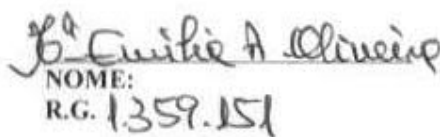 Mª Emilia A Oliveira
NOME:
R.G. 1.359.151